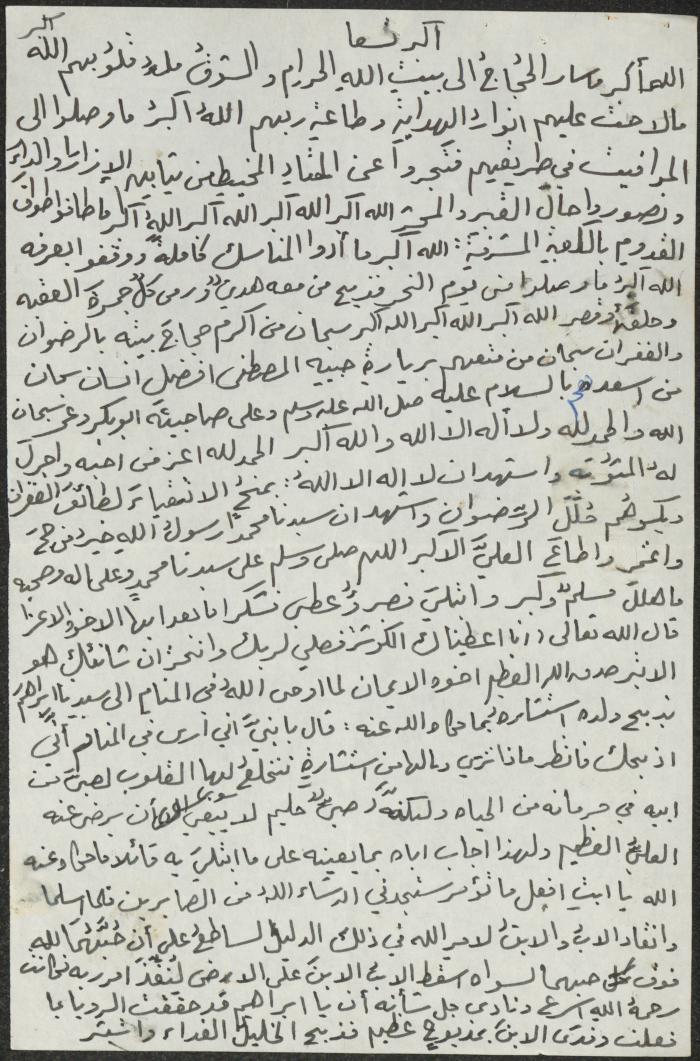 اكبر تسعا
الله أكبر ما سار الحُجاجُ الى بيت اللهِ الحرام و الشوقُ ملءُ قلوبهم الله اكبر
مالاحت عليهم انوارُ الهدايةِ وطاعة ربهم اللهُ اكبرُ ما وصلوا الى
المواقيت في طريقهم فتجردوا عن المعتادِ المخيط من ثيابهم الإزار والرداء
و تصوروا حال القبر والمحشر الله اكبر الله اكبر الله اكبر اللهُ اكبر ما طافوا طواف
القدوم بالكعبة المشرفة: الله اكبر ما أدوا المناسك كاملةً ووقفوا بعرفه
الله اكبرُ ما وصلوا منى يوم النحر فذبح من معه هديٌ و رمى كلٌ جمرة العقبه
وحلقَ أو قصر الله اكبر الله اكبر الله اكبر سبحان من أكرم حجاجَ بيته بالرضوان
والغفران سبحان من متعهم بزيارةِ حبيبه المصطفى افضل انسان سبحان
من اسعدهم بالسلام عليه صلى الله عليه وسلم وعلى صاحبيه ابوبكر وعمر سبحان
الله والحمدلله ولا أله الا الله والله أكبر الحمدلله اعز من احبه واجزل
لهُ المثوبة واشهد ان لا اله الا اللهُ: يمنحُ الاتقياءَ لطائفَ الغفران
ويكسوهُم حُلَلَ الرَّضوان واشهد ان سيدنا محمدًا رسولُ اللهِ خير من حجَّ
واعتمر واطاعَ العليَّ الاكبر اللهم صلى وسلم على سيدنا محمدٍ وعلى اله وصحبه
ما هللَ مسلمٌ وكبر وابتلي فصبر وعطى فشكر اما بعد ايها الاخوة الاعزا
قال الله تعالى ((انا اعطيناك الكوثر فصلي لربك وانحر ان شانئك هو
الابتر صدق الله العظيم اخوه الايمان لما اوحى اللهُ في المنام الى سيدنا ابراهيم
بذبح ولده استشاره بما حكاه الله عنه: قال يا بنيَّ اني أرى في المنام أنيَّ
اذبحك فانظر ماذا ترى ويالها من استشارةٍ تنخلعُ لها القلوب لصبي من
ابيه في حرمانه من الحياه ولكنهُ صبيٌ حليم لا يبغي سوى أن يرضى عنه
العليَّ العظيم ولهذا اجاب اباه بما يعينه على ما ابتلي به قائلا ما حكاه عنه
الله يا ابتِ افعل ما تؤمر ستجدني انشاء اللهُ من الصابرين فلما اسلما
وانقاد الابُ والابنُ لامر الله في ذلك الدليلُ الساطعُ على أن حُبَّهُما لله
فوق كل حبهما لسواه اسقط الابُ الابنَ على الارض لينُفذ امر ربه فكانت
رحمةُ الله اسرع ونادى جل شأنه أن يا ابراهيم قد حققت الرويا بما
فعلت وفدى الابنَ بمذبوحٍ عظيم فذبح الخليلُ الفداء واشتهر